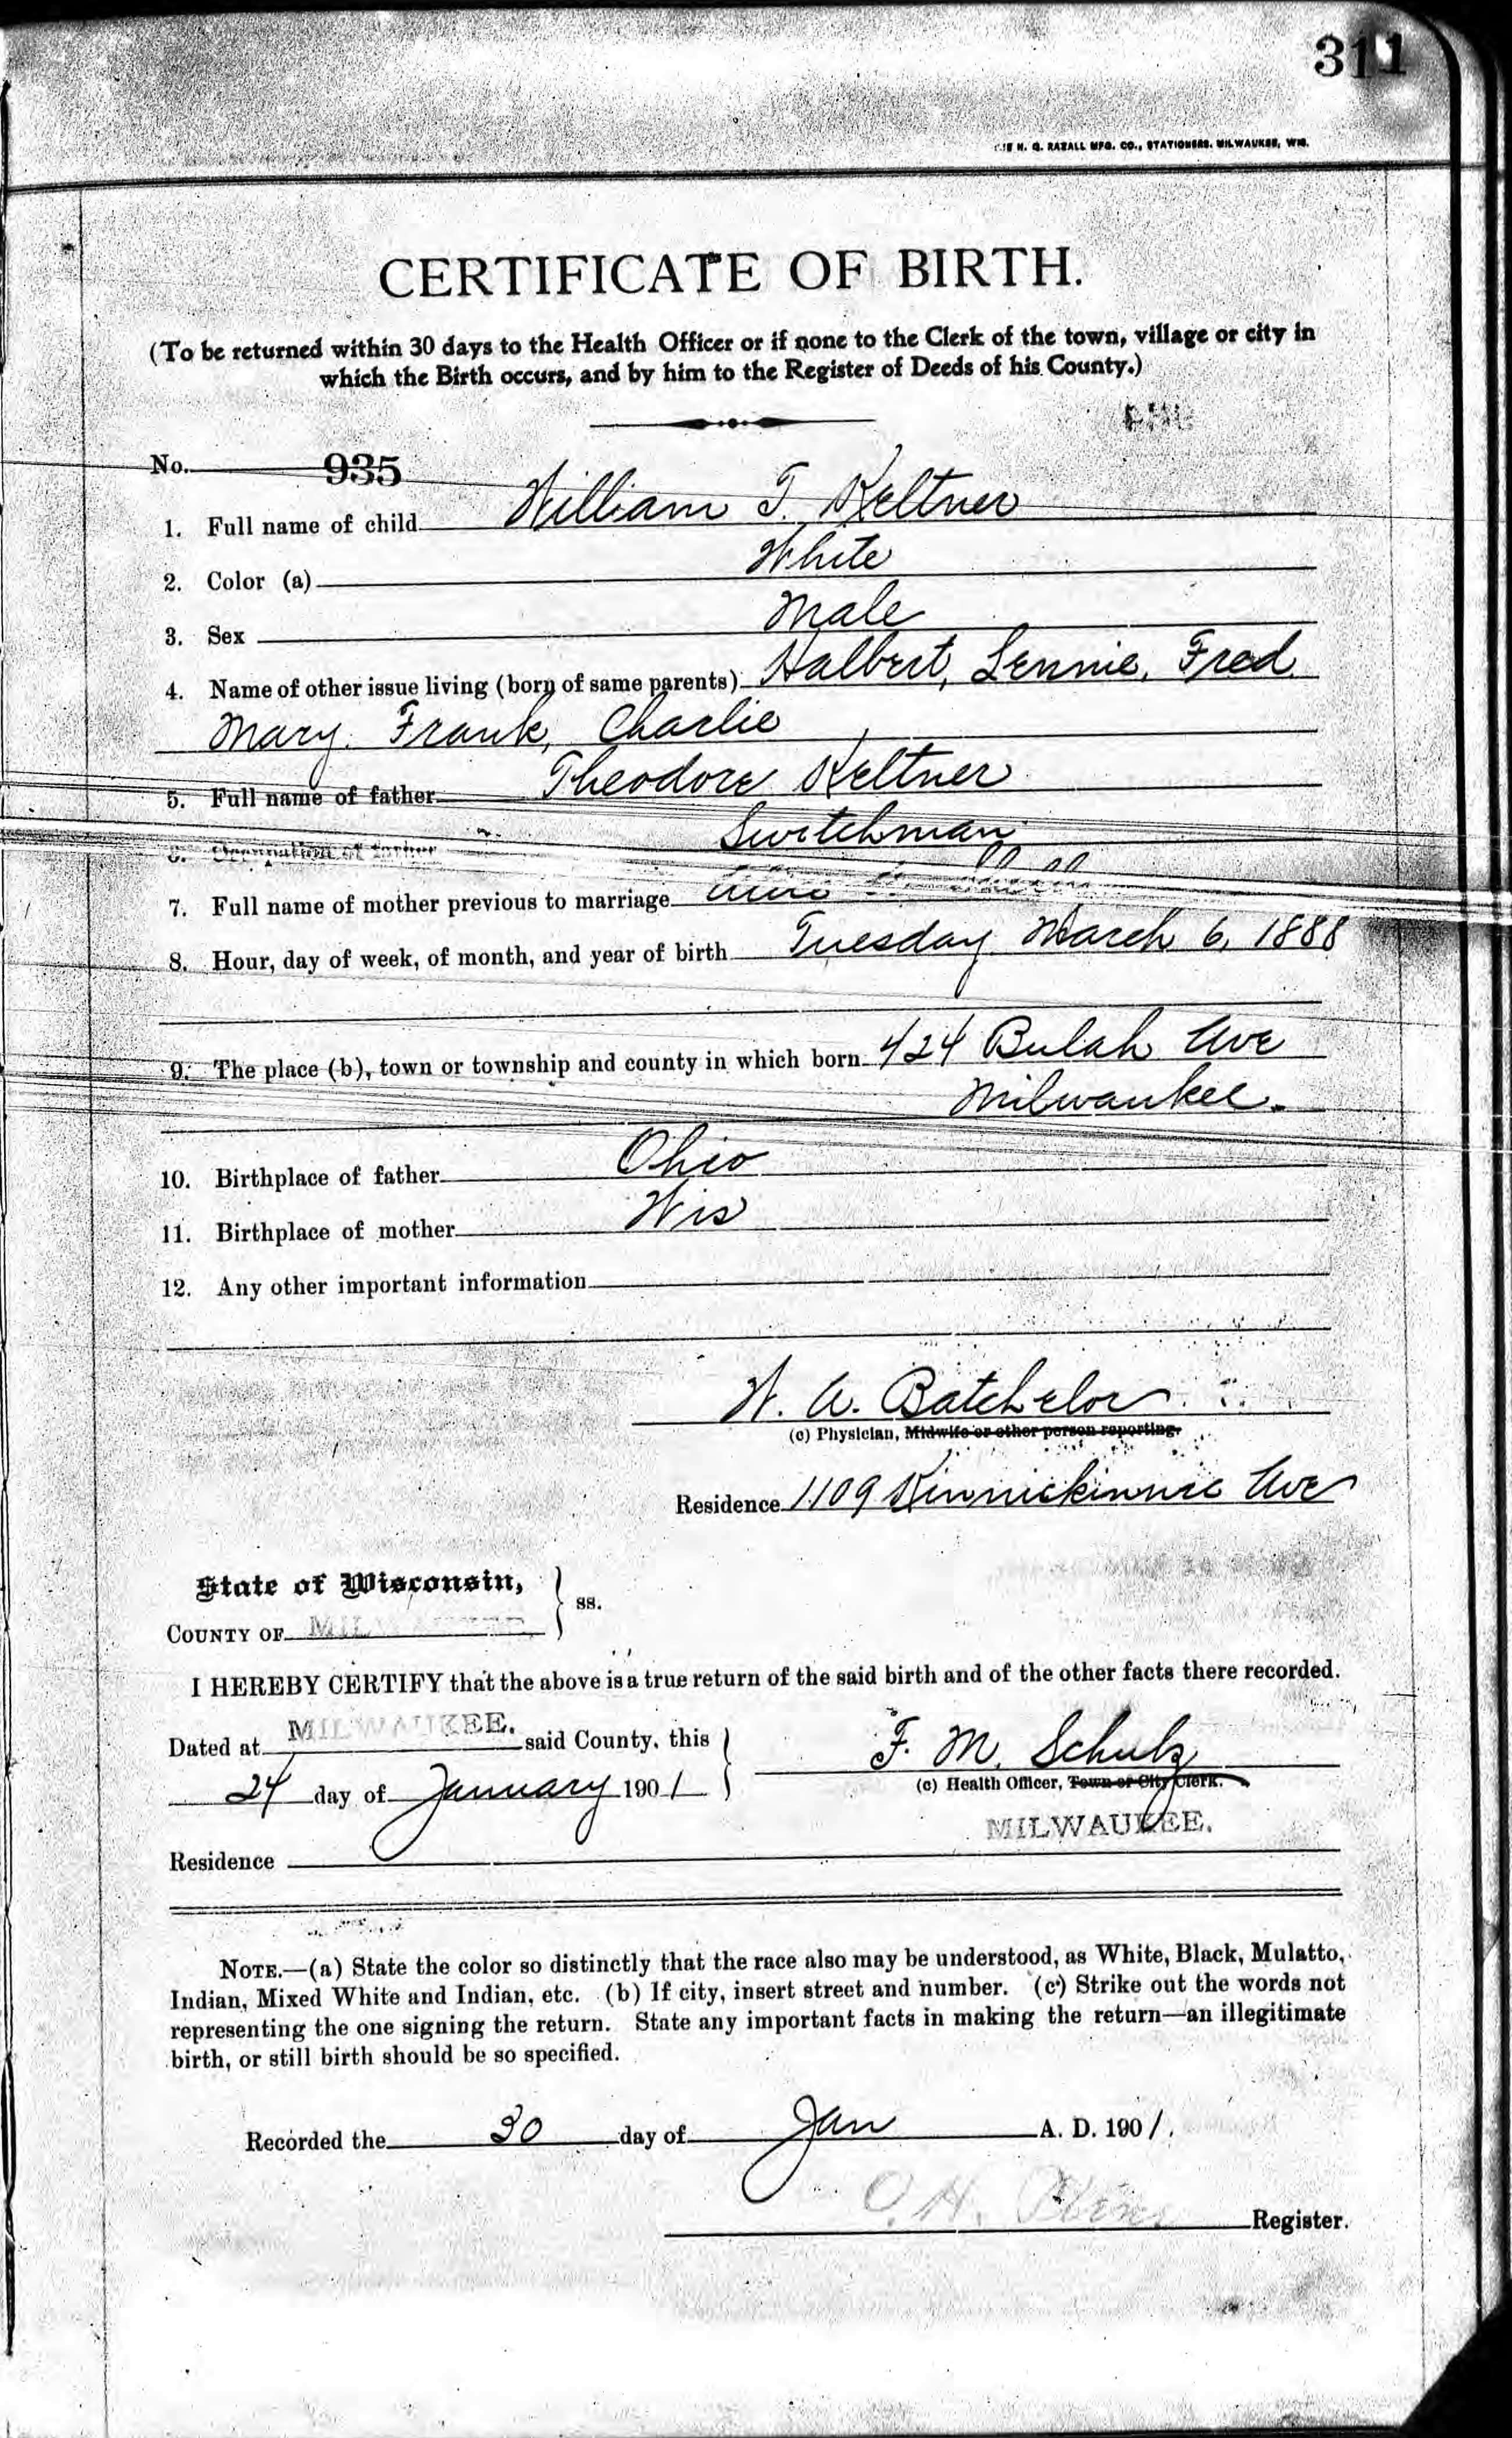 311
H. G. RAZALL MFG. CO., STATIONERS, MILWAUKEE, WIS.
CERTIFICATE OF BIRTH.
(To be returned within 30 days to the Health Officer or if none to the Clerk of the town, village or city in
which the Birth occurs, and by him to the Register of Deeds of his County.)
No. 935
1. Full name of child William T. Keltner
2. Color (a) White
3. Sex Male
4. Name of other issue living (born of same parents) Halbert, Lennie, Fred
Mary. Frank, Charlie
5. Full name of father Theodore Keltner
6. Occupation of father Switchman
7. Full name of mother previous to marriage
8. Hour, day of week, of month, and year of birth Tuesday March 6, 1888
9. The place (b), town or township and county in which born 424 Bulah Ave
Milwaukee.
10. Birthplace of father Ohio
11. Birthplace of mother Wis
12. Any other important information
W. A. Batchelor
(c) Physician, Midwife or other person reporting.
Residence 1109 Kinnickinnic Ave
State of Wisconsin,
COUNTY OF MILWAUKEE } ss.
I HEREBY CERTIFY that the above is a true return of the said birth and of the other facts there recorded.
Dated at MILWAUKEE. said County, this
24 day of January 1901
F. M. Schulz
(c) Health Officer, Town or City Clerk.
MILWAUKEE.
Residence
NOTE.—(a) State the color so distinctly that the race also may be understood, as White, Black, Mulatto,
Indian, Mixed White and Indian, etc. (b) If city, insert street and number. (c) Strike out the words not
representing the one signing the return. State any important facts in making the return—an illegitimate
birth, or still birth should be so specified.
Recorded the 30 day of Jan A. D. 1901.
O. H. Register.